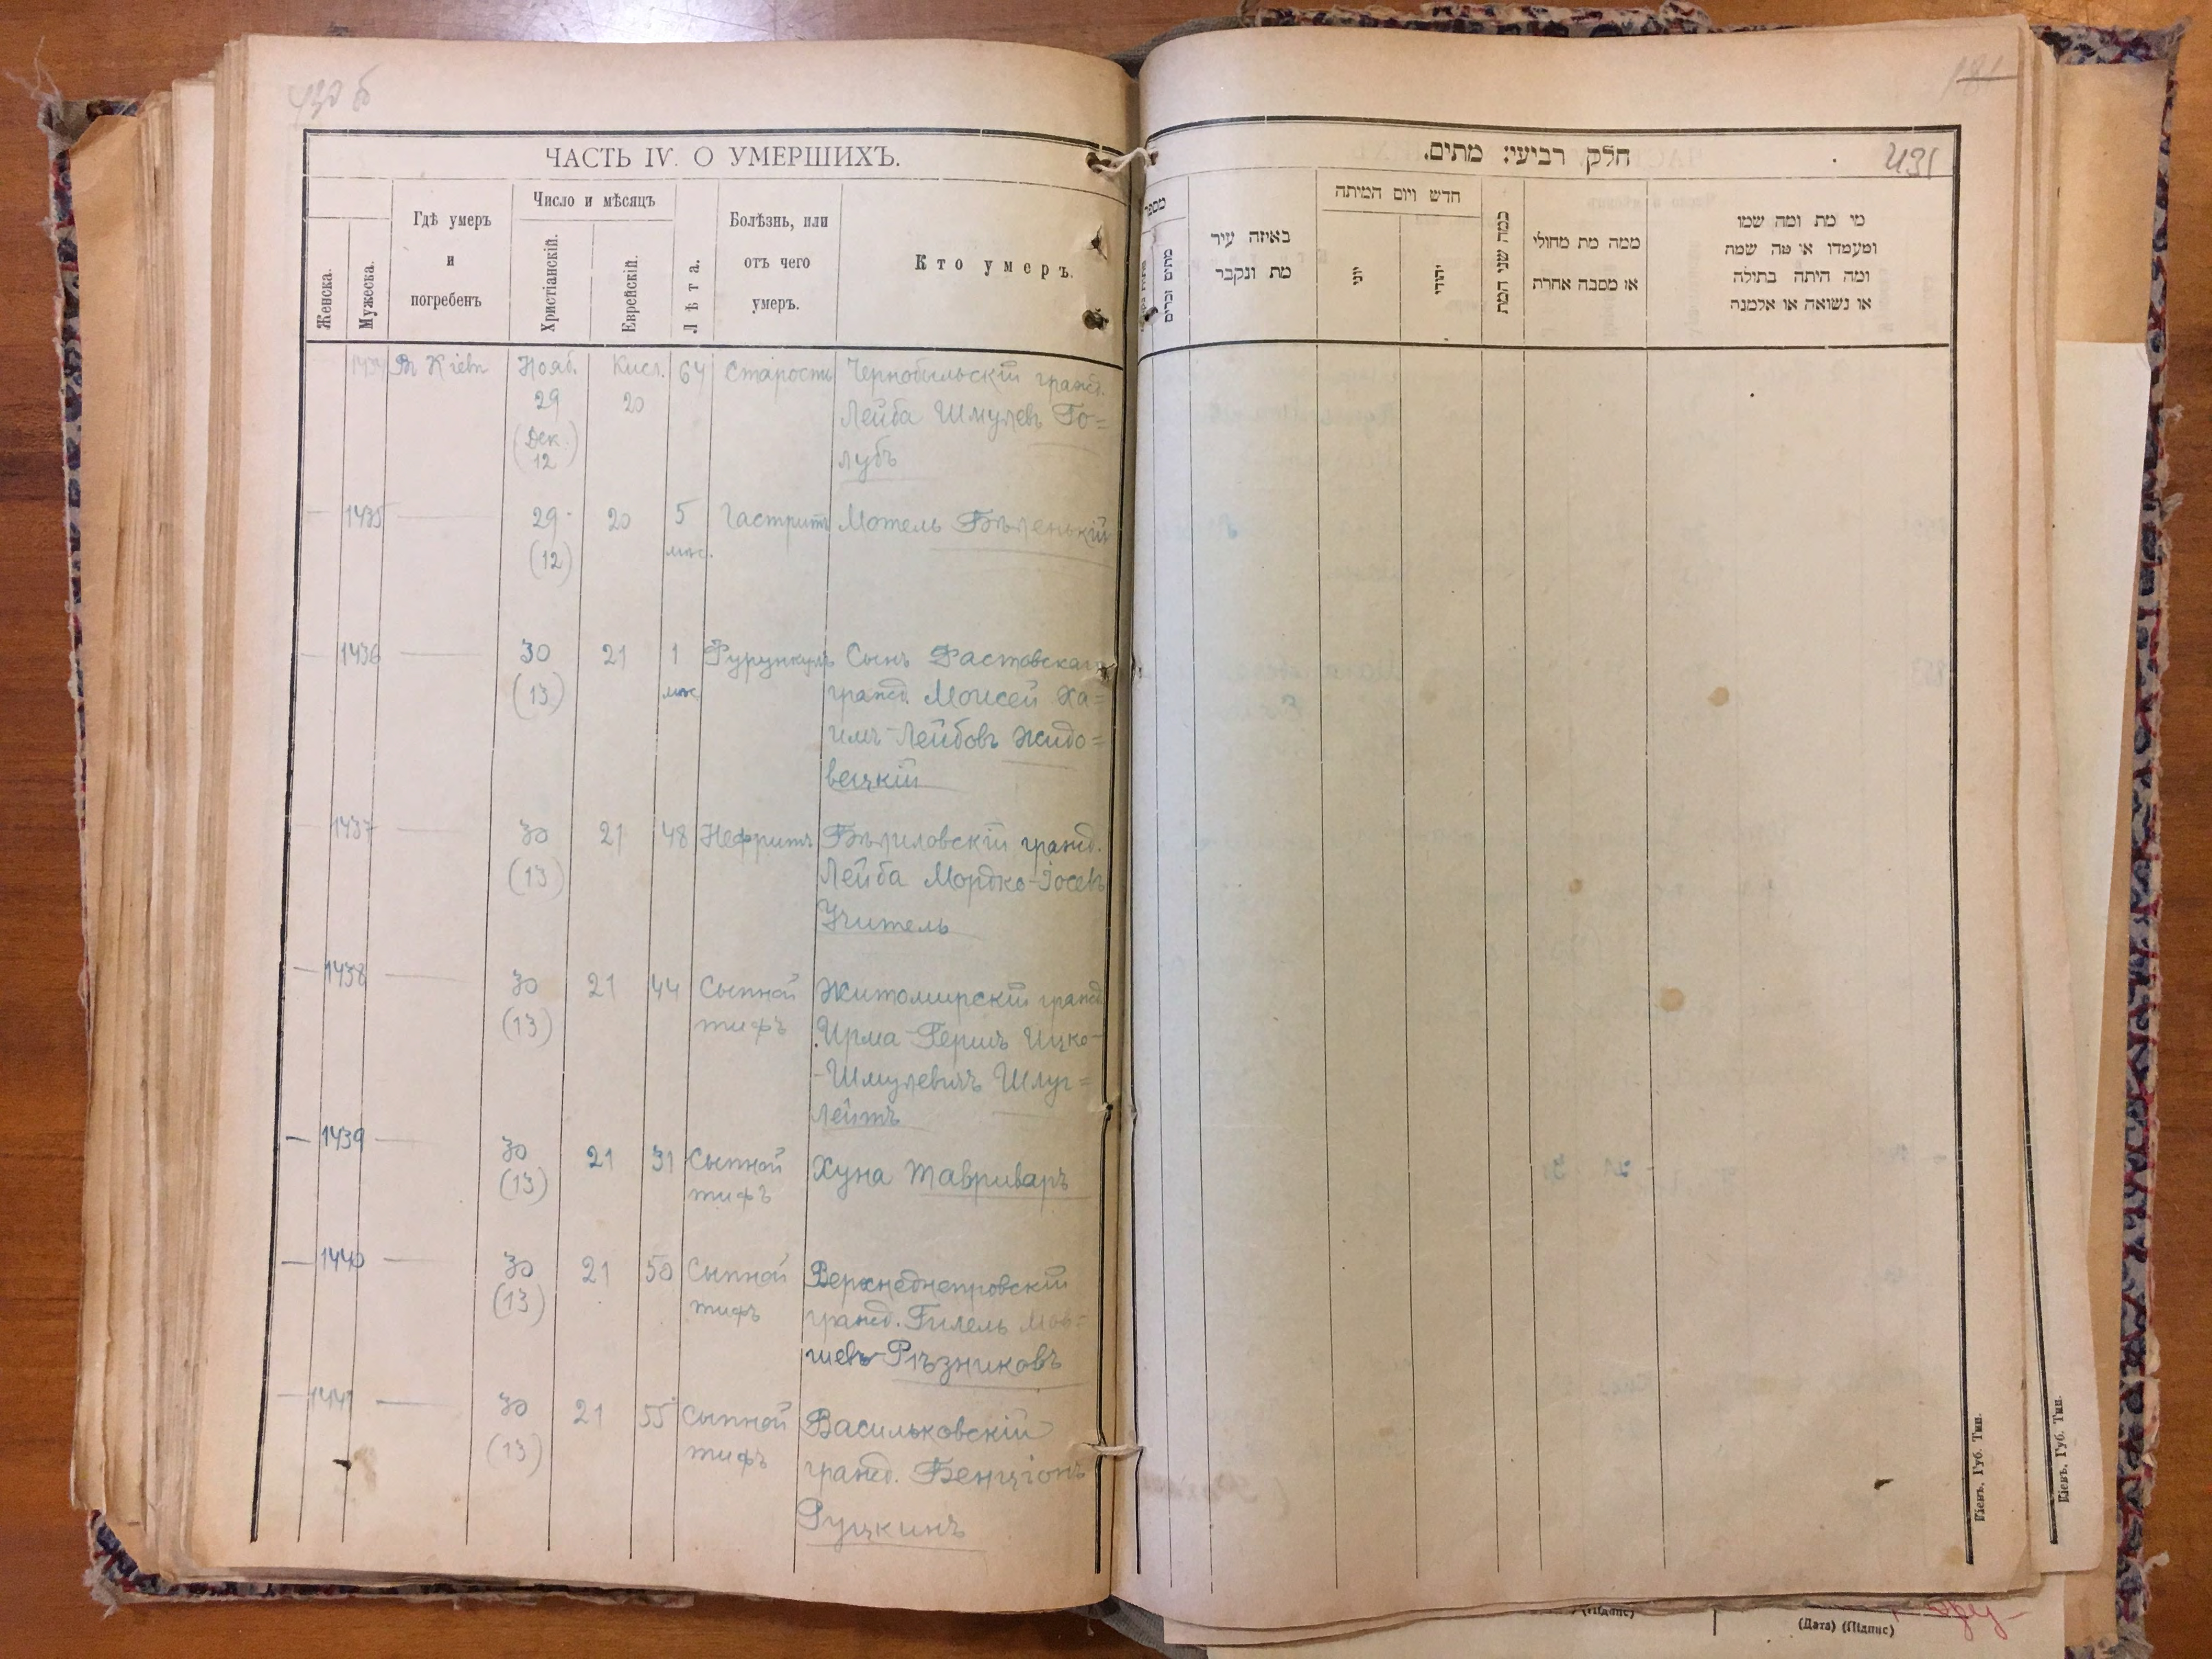 430 б
ЧАСТЬ IV. О УМЕРШИХЪ.
Женска.
Мужеска.
Гдѣ умеръ
и
погребенъ
Число и мѣсяцъ
Христіанскій.
Еврейскій.
Лѣта.
Болѣзнь, или
отъ чего
умеръ.
Кто умеръ.
1434 Въ Кіевѣ Нояб. 29 (Дек. 12) Кисл. 20 64 Старость Чернобыльскій гражд.
Лейба Шмулевъ Го=
лубъ
— 1435 — 29 (12) 20 5 мѣс. Гастритъ Мотель Бѣленькій
— 1436 — 30 (13) 21 1 мѣс. Фурункулъ Сынъ Фастовскаго
гражд. Моисей Ха=
имъ-Лейбовъ Жидо=
вецкій
1437 — 30 (13) 21 48 Нефритъ Бѣлиловскій гражд.
Лейба Мордко-Іосевъ
Учитель
— 1438 — 30 (13) 21 44 Сыпной тифъ Житомирскій гражд.
Герш Ицко-
-Шмулевичъ Шлуг=
лейтъ
— 1439 — 30 (13) 21 31 Сыпной тифъ Хуна Тавриваръ
— 1440 — 30 (13) 21 50 Сыпной тифъ Верхнеднепровскій
гражд. Гилель Мов=
шевъ Рѣзниковъ
— 1441 — 30 (13) 21 55 Сыпной тифъ Васильковскій
гражд. Бенціонъ
Руцкинъ
181
431
חלק רביעי: מתים.
מספר
מתים זכרים
באיזה עיר
מת ונקבר
חדש ויום המיתה
יוני
יהודי
כמה שני המת
ממה מת מחולי
או מסבה אחרת
מי מת ומה שמו
ומעמדו או מה שמה
ומה היתה בתולה
או נשואה או אלמנה
Кіевъ, Губ. Тип.
Кіевъ, Губ. Тип.
(Підпис)
(Дата) (Підпис)